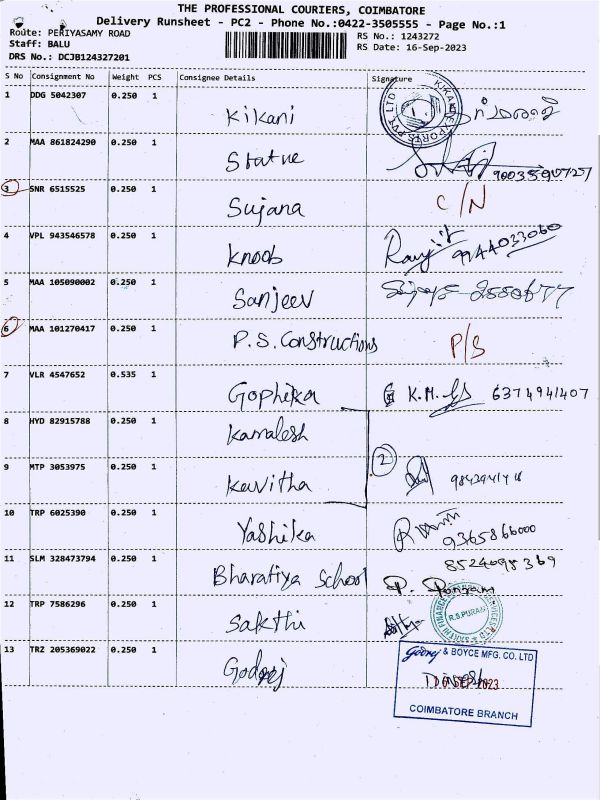 THE PROFESSIONAL COURIERS, COIMBATORE
Delivery Runsheet - PC2 - Phone No.:0422-3505555 - Page No.:1
Route: PERIYASAMY ROAD RS No.: 1243272
Staff: BALU RS Date: 16-Sep-2023
DRS No.: DCJB124327201
S No Consignment No Weight PCS Consignee Details Signature
1 DDG 5042307 0.250 1 Kikani
2 MAA 861824290 0.250 1 Statue
3 SNR 6515525 0.250 1 Sujana C/N
4 VPL 943546578 0.250 1 Knoob Ranjit 9944033060
5 MAA 105090002 0.250 1 Sanjeev
6 MAA 101270417 0.250 1 P.S. Constructions P/S
7 VLR 4547652 0.535 1 Gophika K.M. 6374941407
8 HYD 82915788 0.250 1 Kamalesh
2
9 MTP 3053975 0.250 1 Kavitha
10 TRP 6025390 0.250 1 Yashika 9365866000
11 SLM 328473794 0.250 1 Bharatiya School 8524098369
P. Ponram
12 TRP 7586296 0.250 1 Sakthi
R.S.PURAM
13 TRZ 205369022 0.250 1 Godrej
Godrej & BOYCE MFG. CO. LTD
SEP 2023
COIMBATORE BRANCH